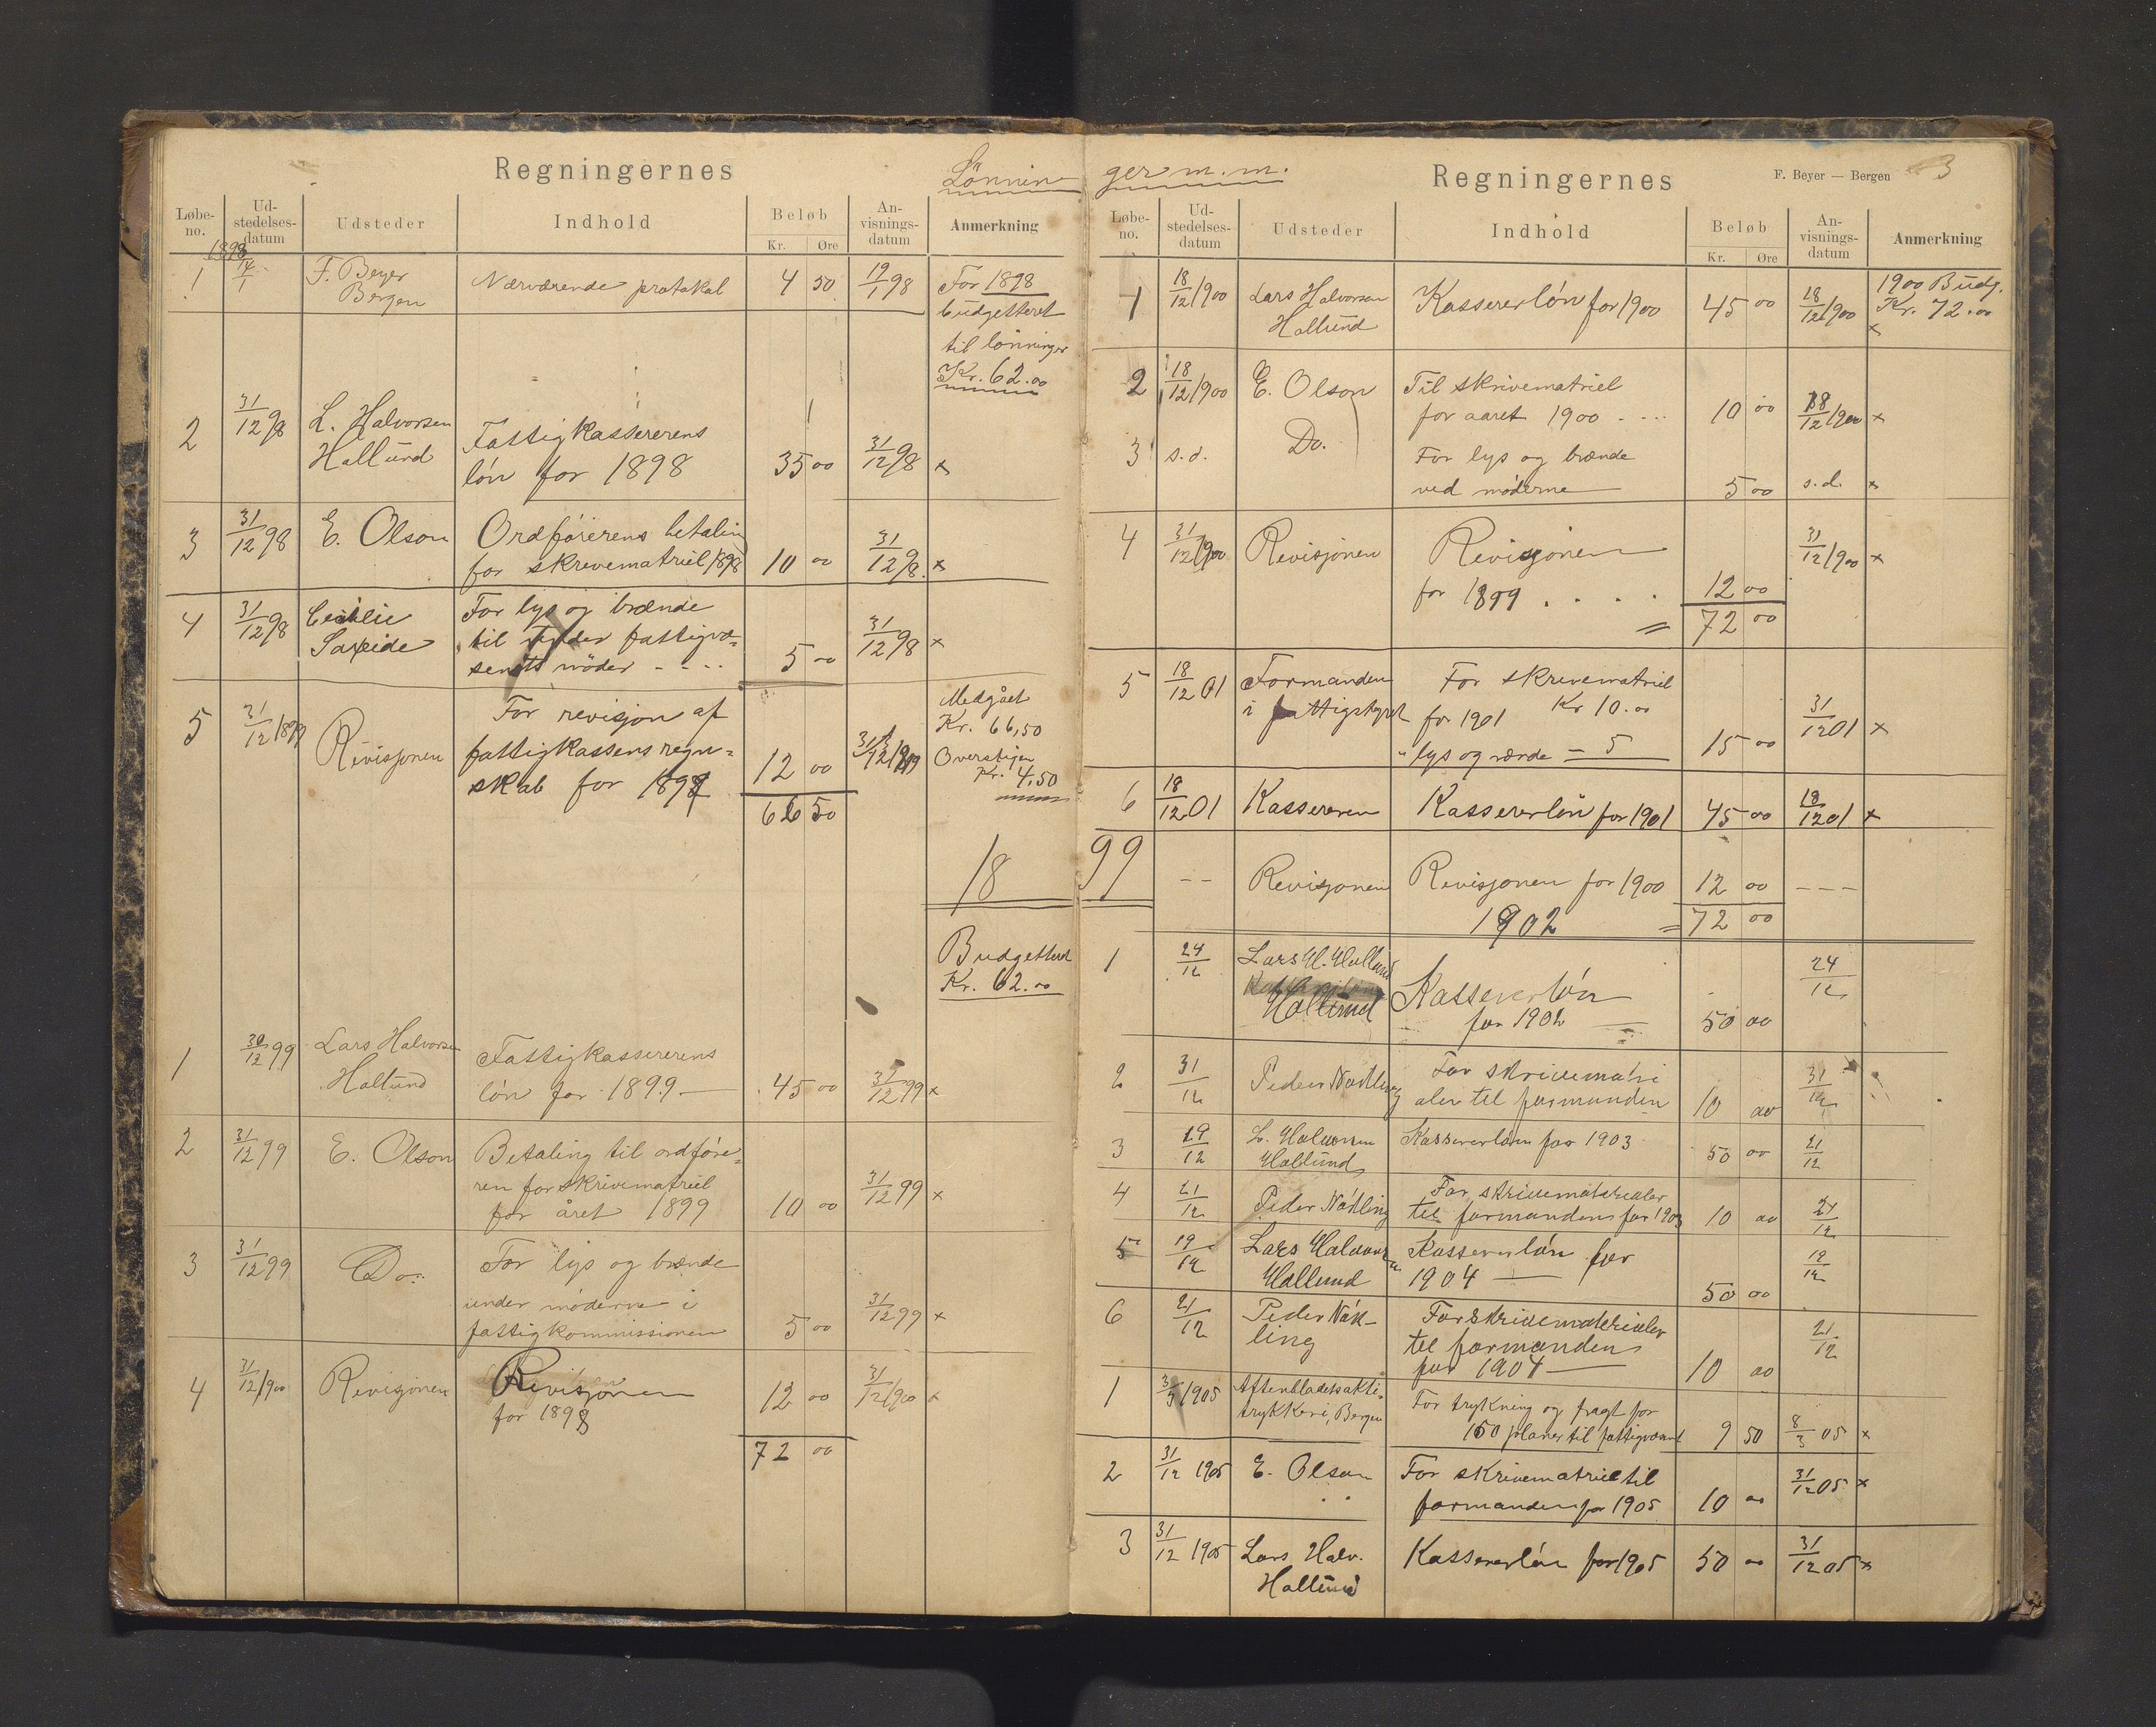 Regningernes
Lønnin
Løbe-
no.
Ud-
stedelses-
datum
Udsteder
Indhold
Beløb
Kr. Øre
An-
visnings-
datum
Anmerkning
1898
1 14/1 F. Beyer Nærværende protokol 4 50 19/1 98 For 1898
Bergen
budgetteret
til lønninger
Kr. 62.00
2 31/12 98 L. Halvorsen Fattigkassererens
Hallund løn for 1898 35 00 31/12 98 x
3 31/12 98 E. Olson Ordførerens betaling
for skrivematriel 1898 10 00 31/12 98 x
4 31/12 98 Cecilie For lys og brænde
Saxeide til fattigvæ=
senets møder - - - 5 00 31/12 98 x
5 31/12 1899 Revisjonen For revisjon af
fattigkassens regn=
skab for 1897 12 00 31/12
66 50
Medgået
Kr. 66,50
Overstiger
Kr. 4,50
18
Budgetteret
Kr. 62.00
1 30/12 99 Lars Halvorsen Fattigkassererens
Hallund løn for 1899. 45 00 31/12 99 x
2 31/12 99 E. Olson Betaling til ordføre=
ren for skrivematriel
for året 1899 10 00 31/12 99 x
3 31/12 99 Do. For lys og brænde
under møderne i
fattigkommissionen 5 00 31/12 99 x
4 31/12 1900 Revisjonen Revisjonen 12 00 31/12 1900 x
for 1898
72 00
ger m. m.
Regningernes
F. Beyer — Bergen
3
Løbe-
no.
Ud-
stedelses-
datum
Udsteder
Indhold
Beløb
Kr. Øre
An-
visnings-
datum
Anmerkning
1 18/12 1900 Lars Halvorsen Kassererløn for 1900 45 00 18/12 1900 1900 Budg.
Hallund Kr. 72.00
x
2 18/12 1900 E. Olson Til skrivematriel
for aaret 1900 - - - 10 00 18/12 1900 x
3 s.d. Do. For lys og brænde
ved møderne 5 00 s.d. x
4 31/12 1900 Revisjonen Revisjonen 31/12 1900 x
for 1899 . . . . 12 00
= 72 00
5 18/12 01 Formanden For skrivematriel
i fattigstyret for 1901 Kr 10.00
" lys og værde - 5 15 00 31/12 01 x
6 18/12 01 Kassereren Kassererløn for 1901 45 00 18/12 01 x
99
- - Revisjonen Revisjonen for 1900 12 00 - - -
1902 = 72 00
1 24/12 Lars H. Hallund 24/12
Hallund Kassererløn
for 1902 50 00
2 31/12 Peder Nøkling For skrivematri
aler til formanden 10 00 31/12
3 29/12 L. Halvorsen Kassererløn for 1903 50 00 21/12
Hallund
4 21/12 Peder Nøkling For skrivematerialer
til formanden for 1903 10 00 21/12
5 19/12 Lars Halvorsen Kassererløn for
Hallund 1904 50 00 19/12
6 21/12 Peder Nøk- For skrivematerialer
ling til formanden
for 1904 10 00 21/12
1 3/3 1905 Aftenbladets akti. For trykning og fragt for
trykkeri, Bergen 150 planer til fattigvæsnet 9 50 8/3 05 x
2 31/12 1905 E. Olson For skrivematriel til
formanden for 1905 10 00 31/12 05 x
3 31/12 1905 Lars Halv. Kassererløn for 1905 50 00 31/12 05 x
Hallund